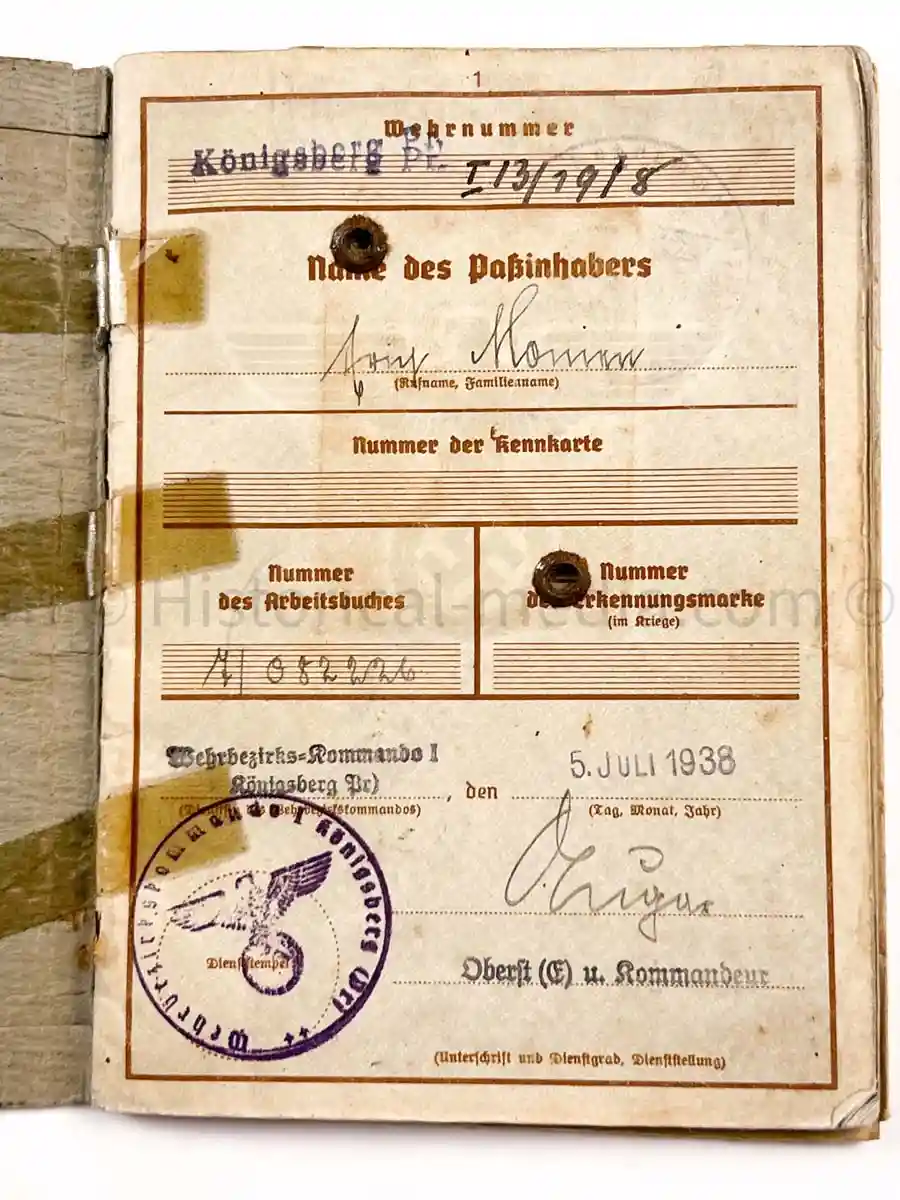 1
Wehrnummer
Königsberg Pr.
I 13/19/8
Name des Paßinhabers
Monien
(Rufname, Familienname)
Nummer der Kennkarte
Nummer
des Arbeitsbuches
Nummer
der Erkennungsmarke
(im Kriege)
7/ 082226
© Historical-media.com ©
Wehrbezirks=Kommando I
Königsberg Pr)
, den
5. JULI 1938
(Tag, Monat, Jahr)
Wehrbezirkskommando I Königsberg (Pr)
Dienststempel
Oberst (E) u. Kommandeur
(Unterschrift und Dienstgrad, Dienststellung)